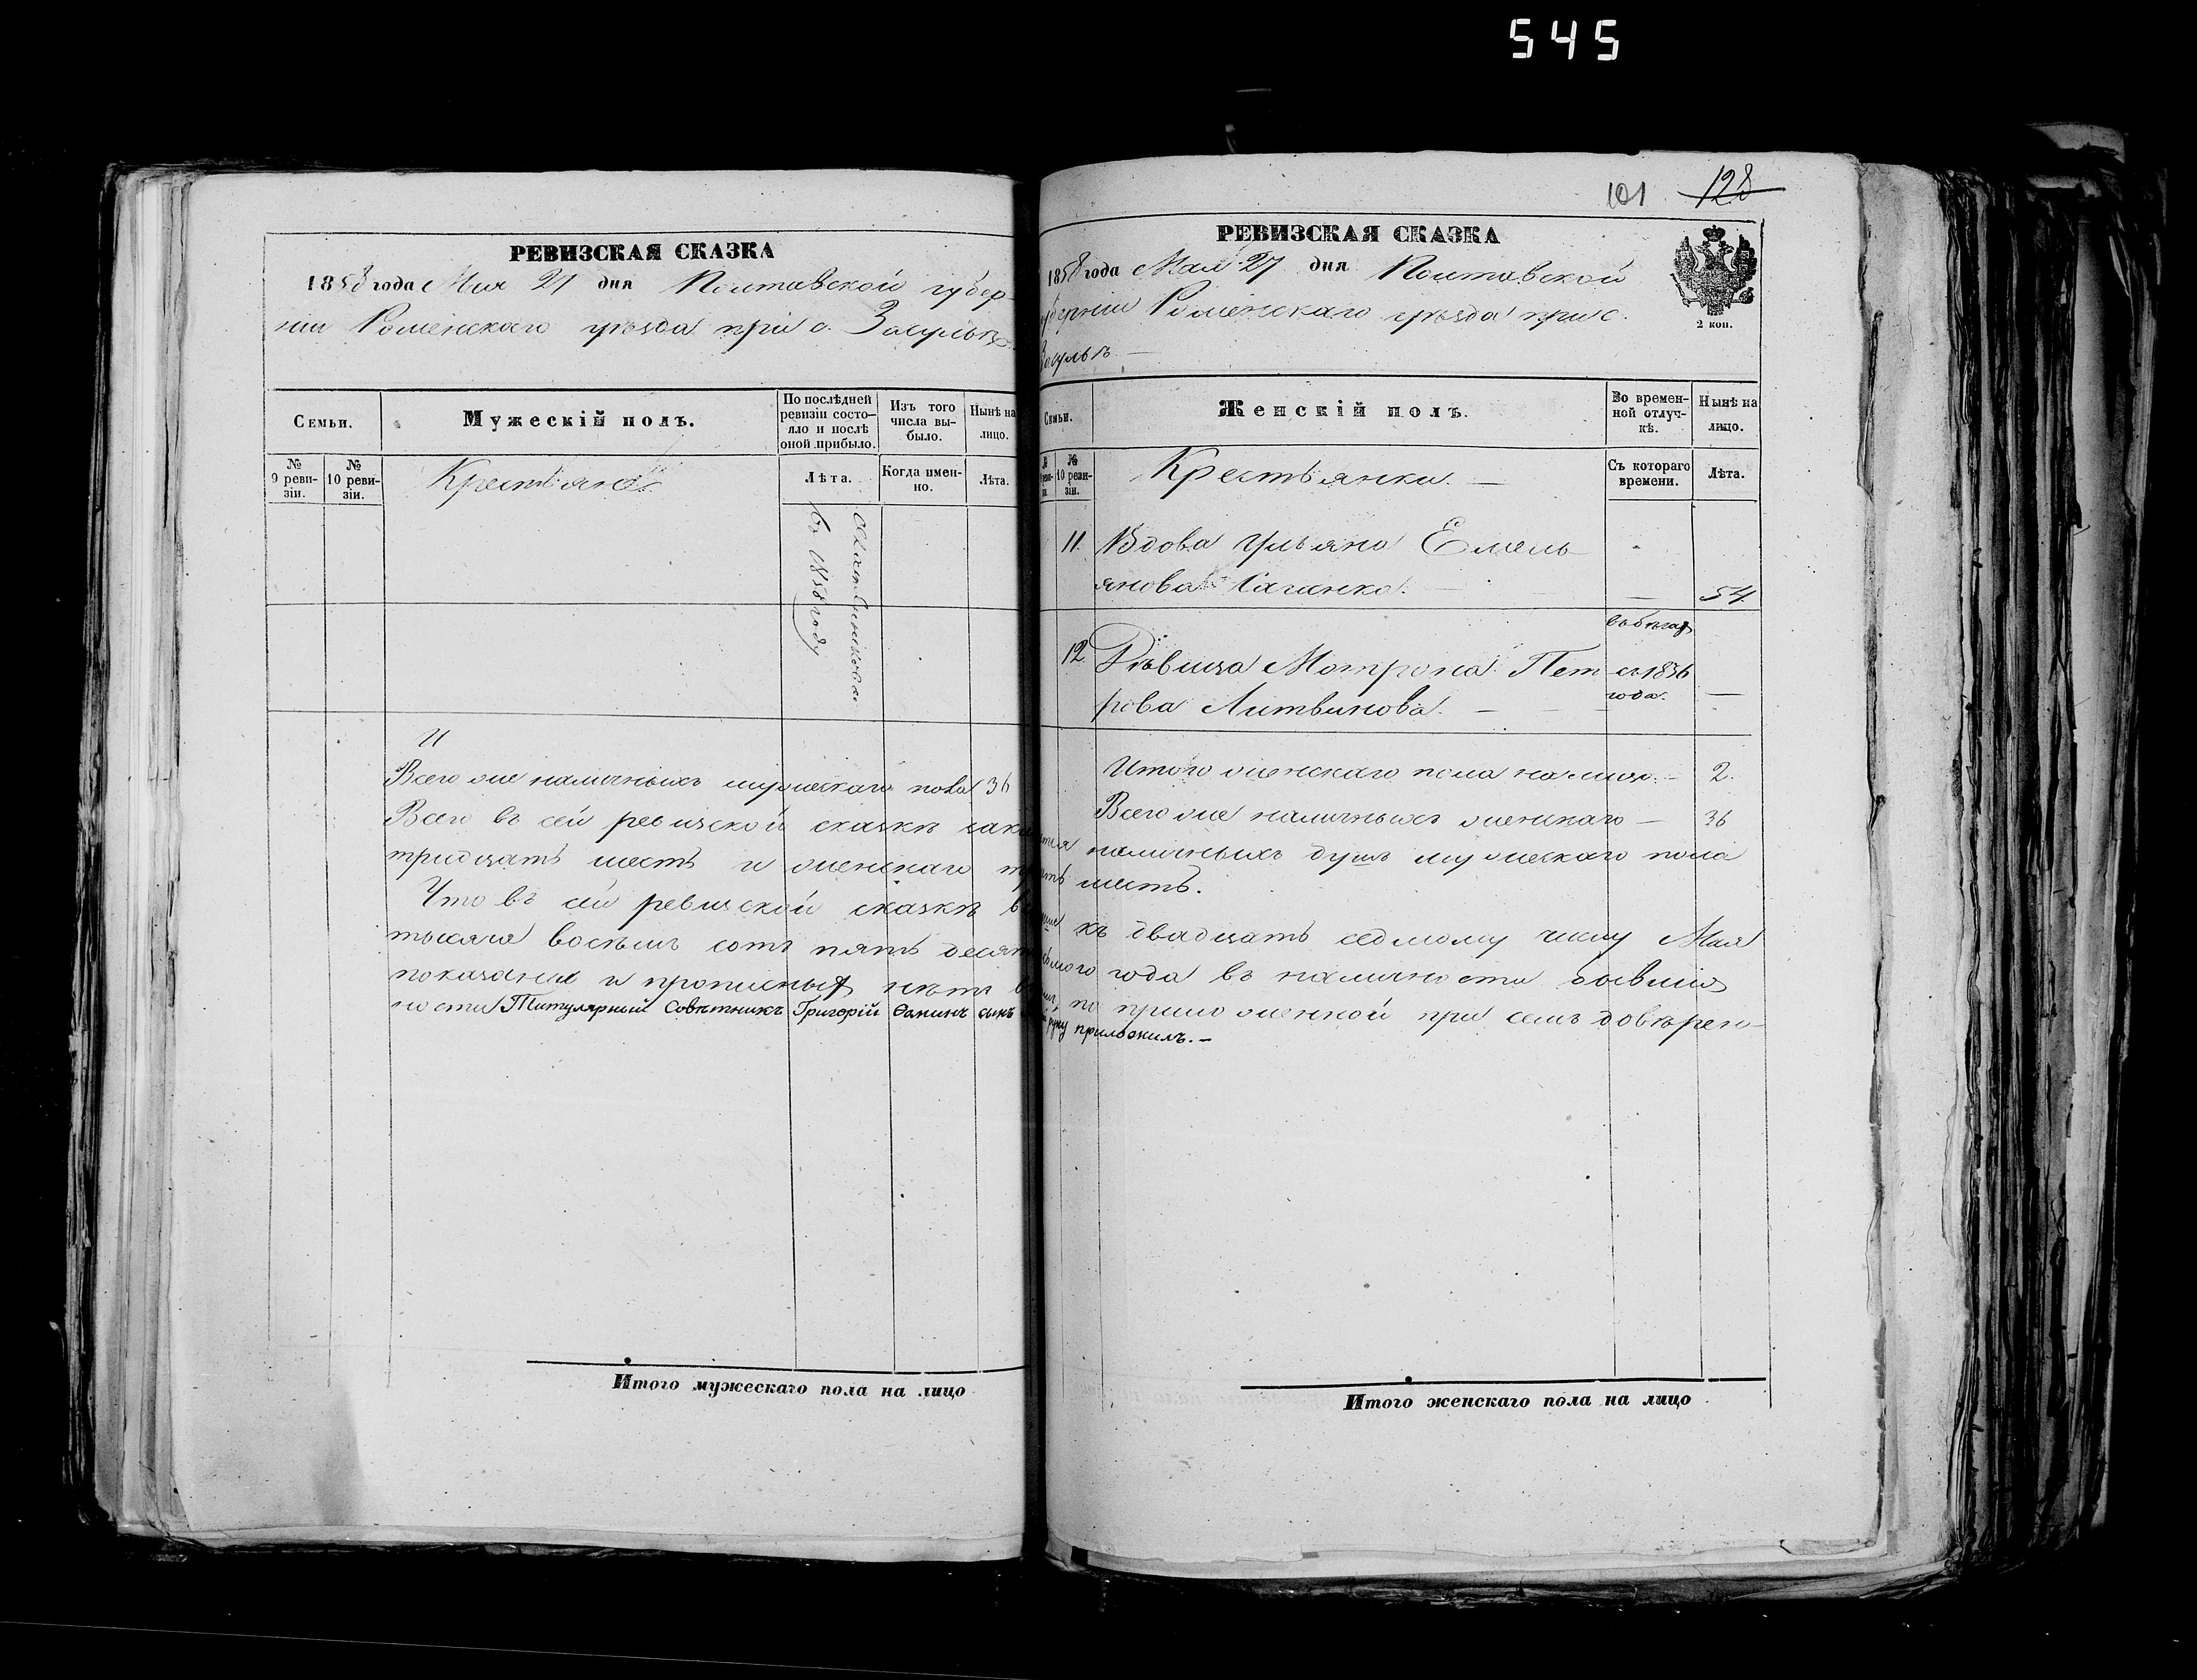 545
РЕВИЗСКАЯ СКАЗКА
1858 года Мая 27 дня Полтавской губер-
ніи Роменскаго уѣзда при с. Засульѣ
Семьи.
Мужескій полъ.
По послѣдней
ревизіи состо-
яло и послѣ
оной прибыло.
Изъ того
числа вы-
было.
Нынѣ на
лицо.
№
9 реви-
зіи.
№
10 реви-
зіи.
Крестьяне
Лѣта.
Когда имен-
но.
Лѣта.
въ 1858 году
И
Всего же наличныхъ мужескаго пола 36
Всего въ сей ревизской сказкѣ
тридцать шесть и женскаго
Что въ сей ревизской сказкѣ
тысяча восемь сотъ пять десят
показаны и прописныхъ нѣтъ
ности Титулярный Совѣтникъ Григорій Ѳаминъ сынъ
Итого мужескаго пола на лицо
101 128
РЕВИЗСКАЯ СКАЗКА
1858 года Мая 27 дня Полтавской
губерніи Роменскаго уѣзда при с.
Засульѣ
2 коп.
Семьи.
Женскій полъ.
Во времен-
ной отлуч-
кѣ.
Нынѣ на
лицо.
№
10 реви-
зіи.
Крестьянки.
Съ котораго
времени.
Лѣта.
11. Вдова Ульяна Емель
янова 54
въ бѣгах
12 Дѣвица Мотрона Пет съ 1856
рова Литвинова. года.
Итого женскаго пола на лицо. 2.
Всего же наличныхъ женскаго 36
наличныхъ душъ мужескаго пола
шесть.
къ двадцать седьмому числу Мая
года въ наличности бывшіе
по приложенной при семъ довѣрен-
руку приложилъ.
Итого женскаго пола на лицо